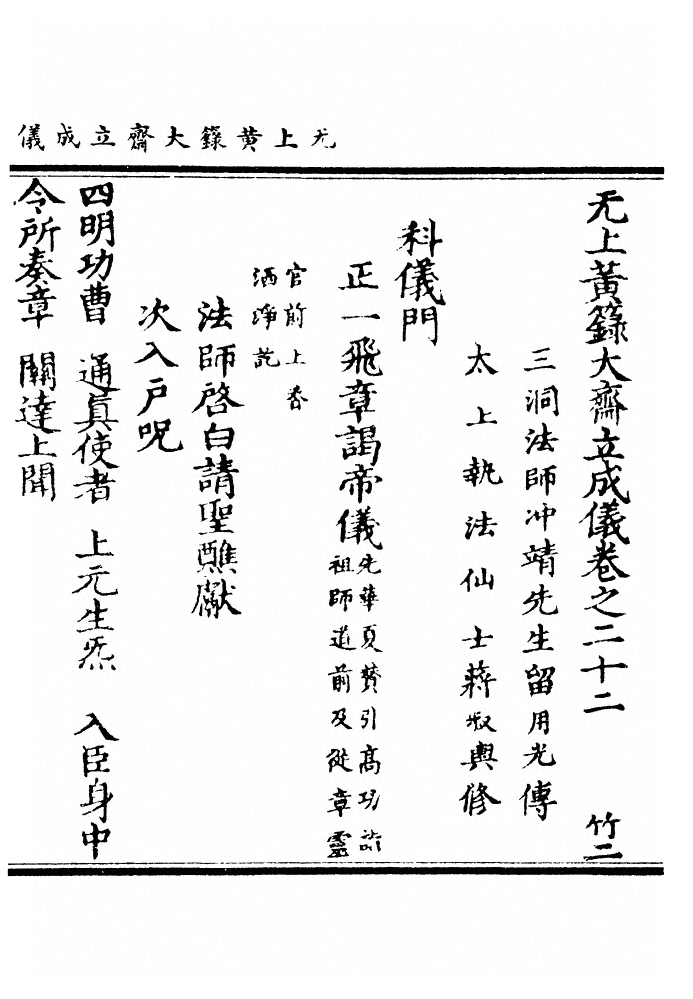 无上黄籙大齋立成儀
无上黃籙大齋立成儀卷之二十二 竹二
三洞法師冲靖先生留用光傳
太上執法仙士蔣叔輿修
科儀門
正一飛章謁帝儀
先華夏贊引高功詣
祖師道前及從章靈
官前上香
洒淨訖
法師啓白請聖醮獻
次入戶呪
四明功曹 通真使者 上元生炁 入臣身中
令所奏章 關達上聞